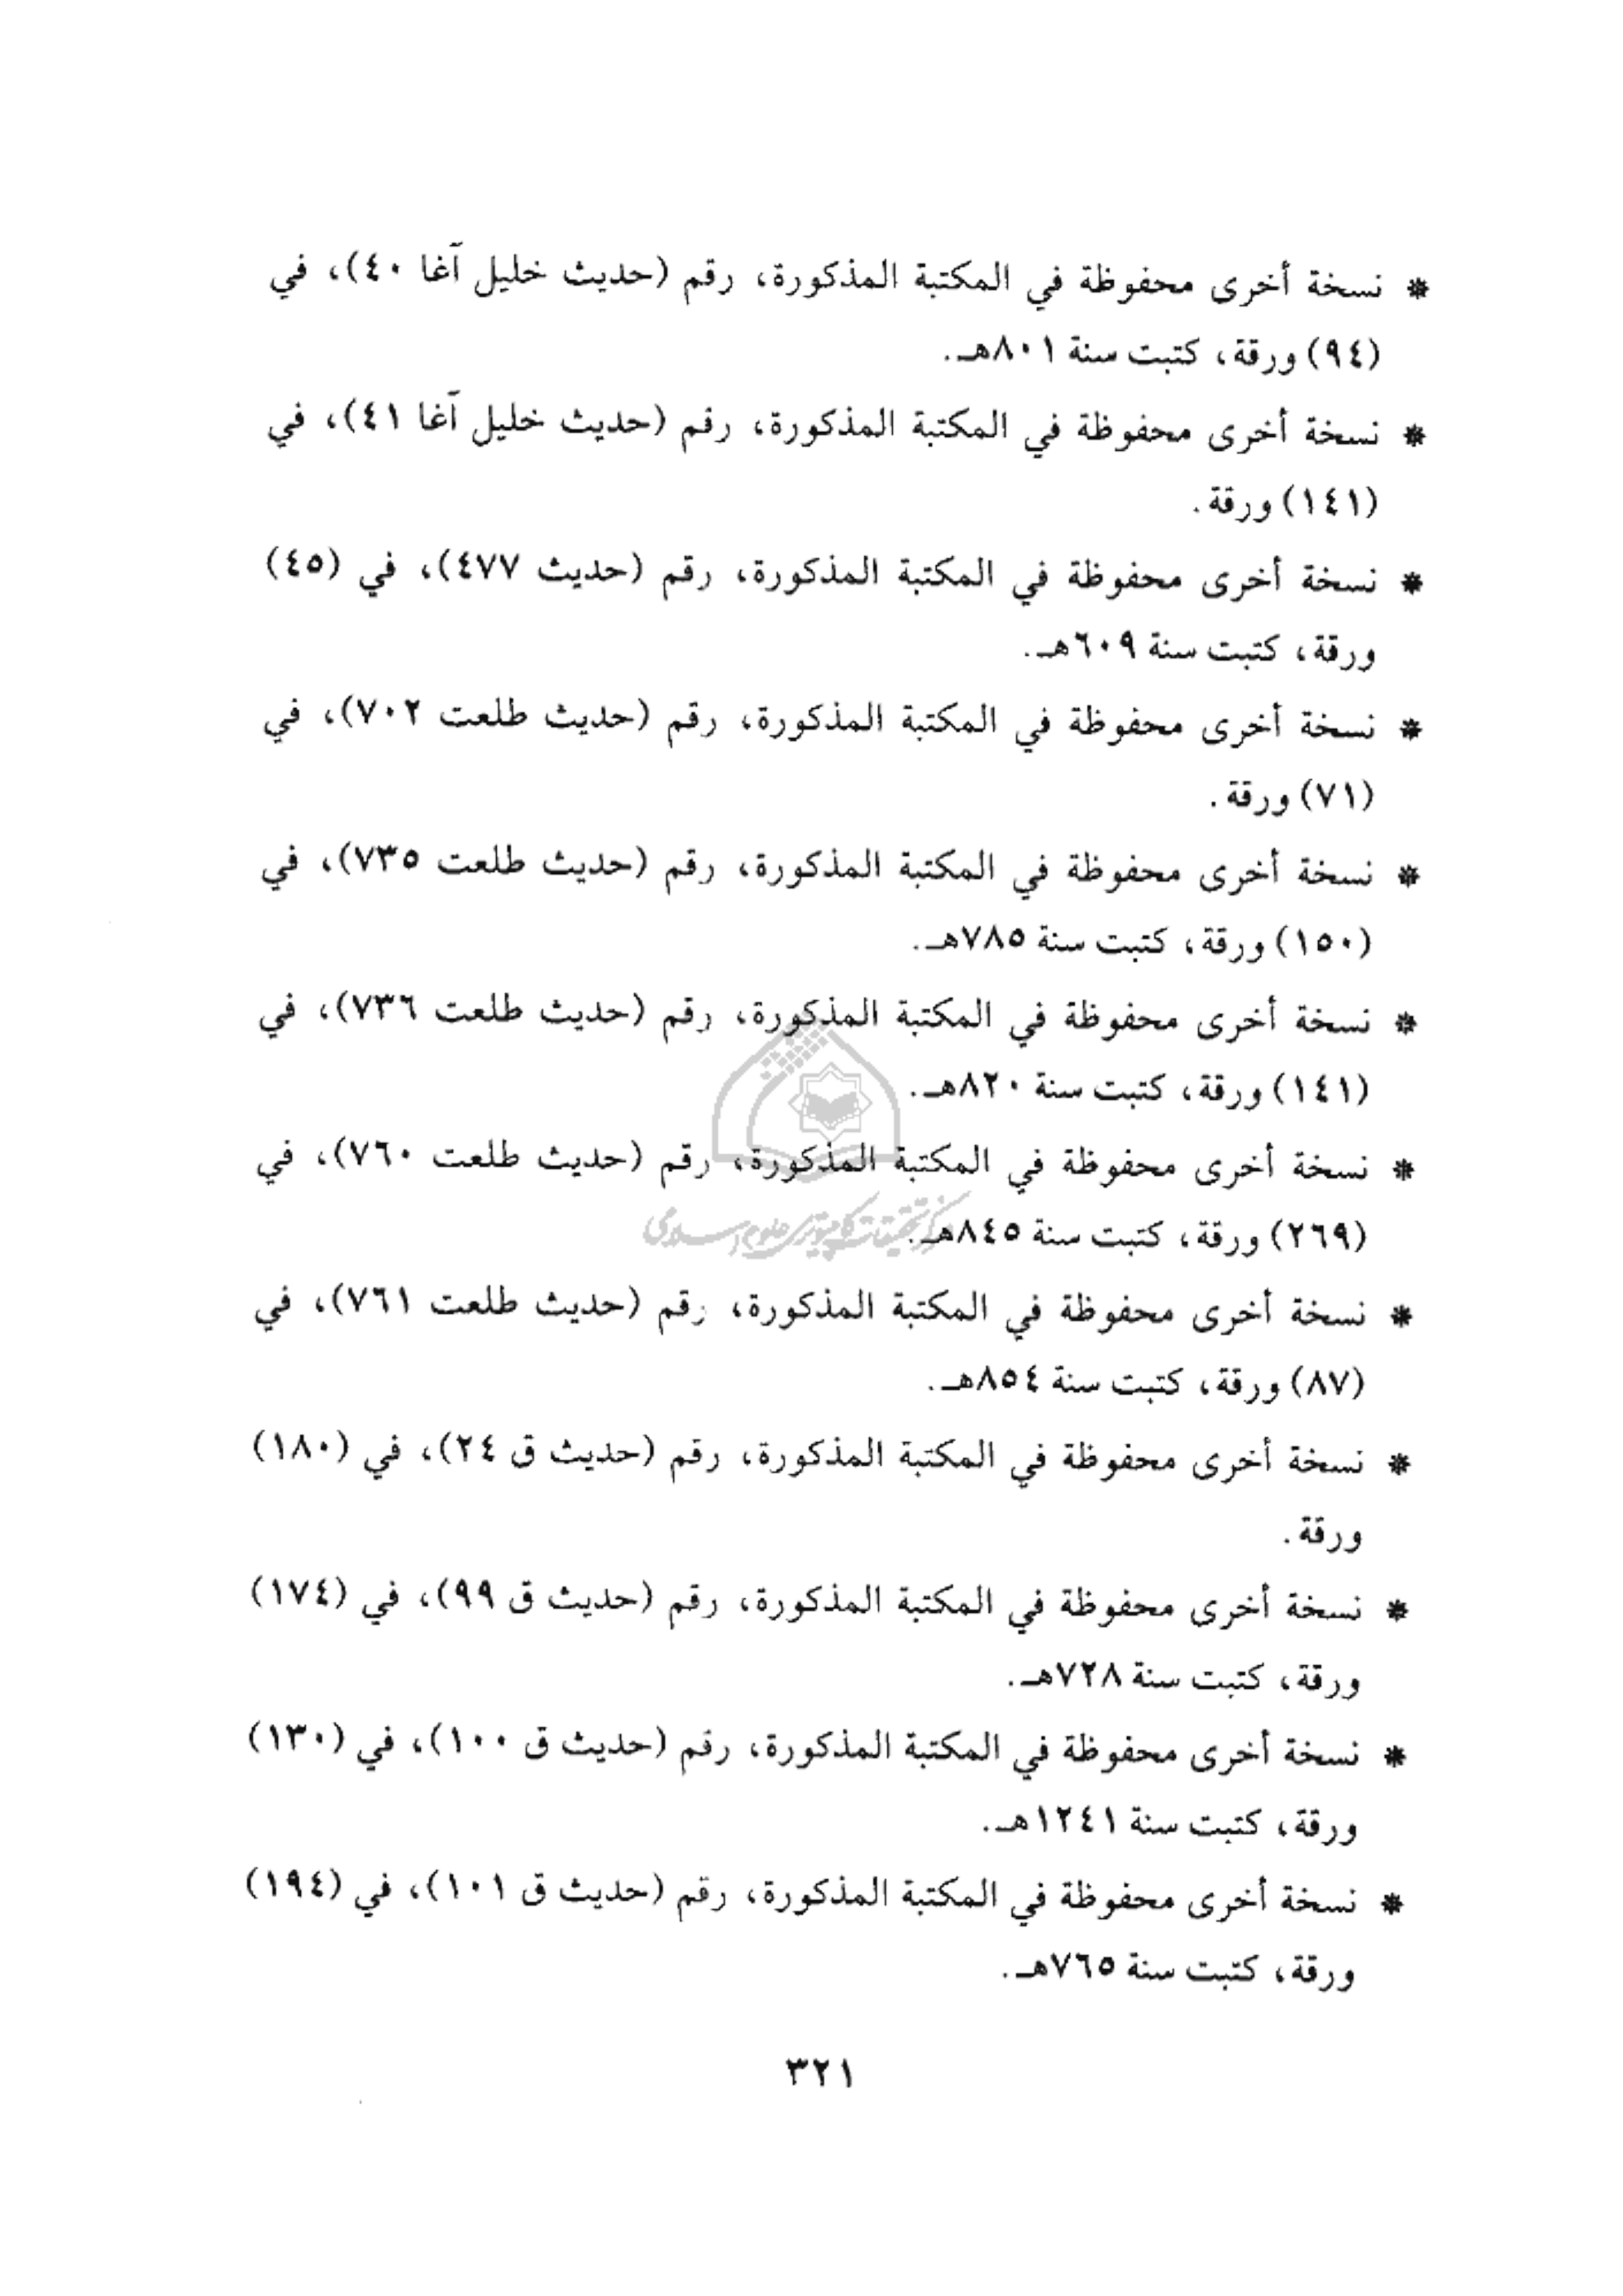 * نسخة أخرى محفوظة في المكتبة المذكورة، رقم (حديث خليل آغا ٤٠)، في
(٩٤) ورقة، كتبت سنة ٨٠١هـ.
* نسخة أخرى محفوظة في المكتبة المذكورة، رقم (حديث خليل آغا ٤١)، في
(١٤١) ورقة.
* نسخة أخرى محفوظة في المكتبة المذكورة، رقم (حديث ٤٧٧)، في (٤٥)
ورقة، كتبت سنة ٦٠٩هـ.
* نسخة أخرى محفوظة في المكتبة المذكورة، رقم (حديث طلعت ٧٠٢)، في
(٧١) ورقة.
* نسخة أخرى محفوظة في المكتبة المذكورة، رقم (حديث طلعت ٧٣٥)، في
(١٥٠) ورقة، كتبت سنة ٧٨٥هـ.
* نسخة أخرى محفوظة في المكتبة المذكورة، رقم (حديث طلعت ٧٣٦)، في
(١٤١) ورقة، كتبت سنة ٨٢٠هـ.
* نسخة أخرى محفوظة في المكتبة المذكورة، رقم (حديث طلعت ٧٦٠)، في
(٢٦٩) ورقة، كتبت سنة ٨٤٥هـ.
مرکز تحقیقات کامپیوتری علوم اسلامی
* نسخة أخرى محفوظة في المكتبة المذكورة، رقم (حديث طلعت ٧٦١)، في
(٨٧) ورقة، كتبت سنة ٨٥٤هـ.
* نسخة أخرى محفوظة في المكتبة المذكورة، رقم (حديث ق ٢٤)، في (١٨٠)
ورقة.
* نسخة أخرى محفوظة في المكتبة المذكورة، رقم (حديث ق ٩٩)، في (١٧٤)
ورقة، كتبت سنة ٧٢٨هـ.
* نسخة أخرى محفوظة في المكتبة المذكورة، رقم (حديث ق ١٠٠)، في (١٣٠)
ورقة، كتبت سنة ١٢٤١هـ.
* نسخة أخرى محفوظة في المكتبة المذكورة، رقم (حديث ق ١٠١)، في (١٩٤)
ورقة، كتبت سنة ٧٦٥هـ.
٣٢١